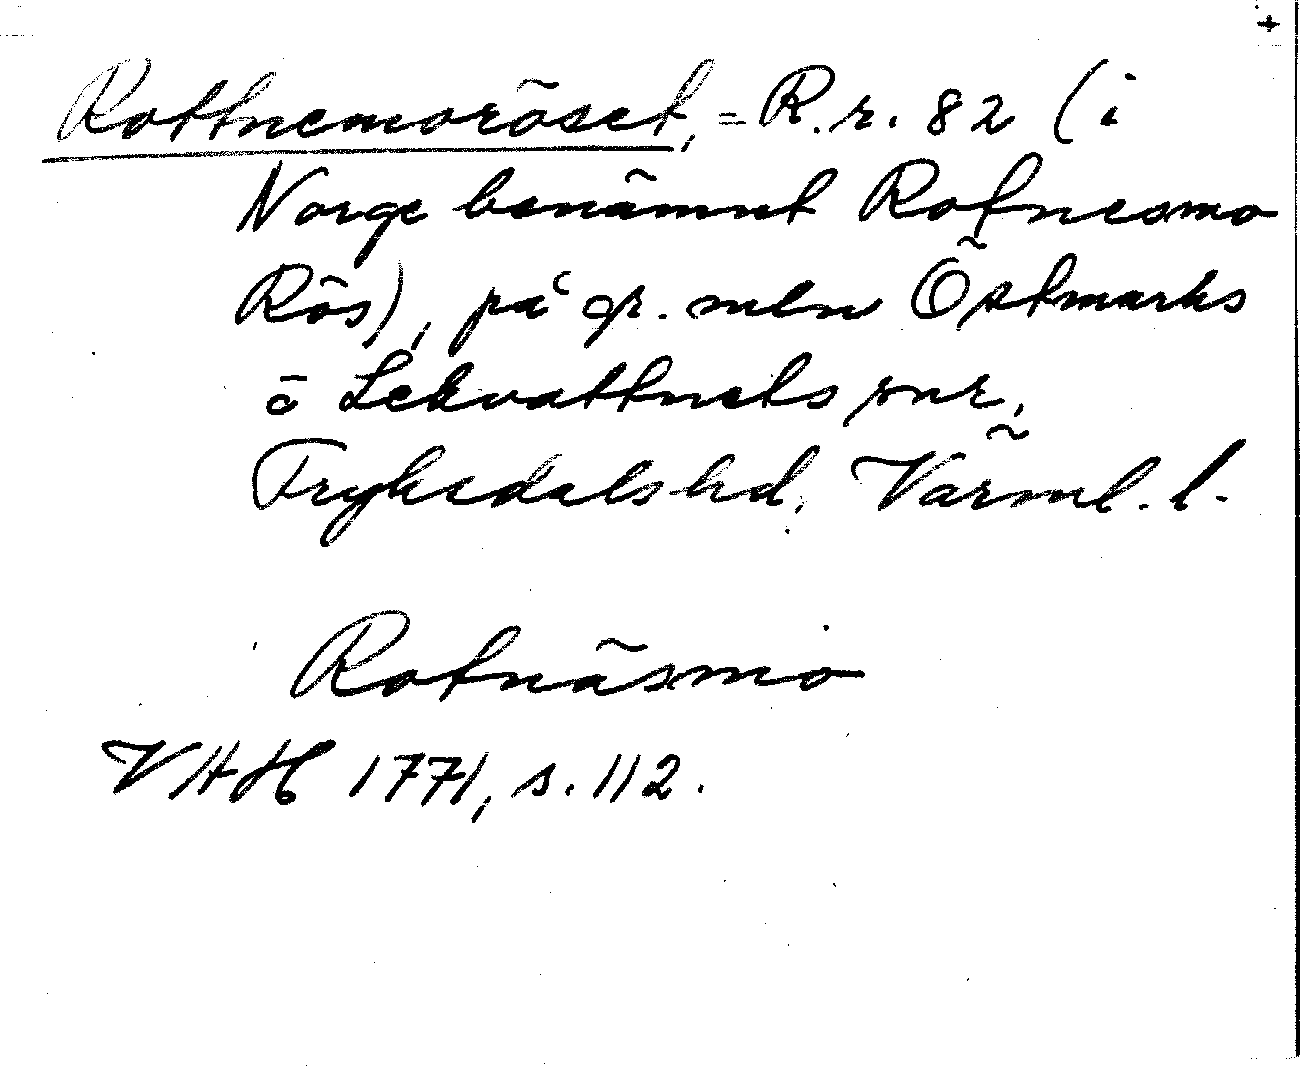 +
Rottnemoröset, = R.r. 82 (i
Norge benämnt Rotnesmo
Rös), på gr. mln Östmarks
o Lekvattnets snr,
Fryksdals hd, Värml. l.
Rotnäsmo
VHH 1771, s. 112.